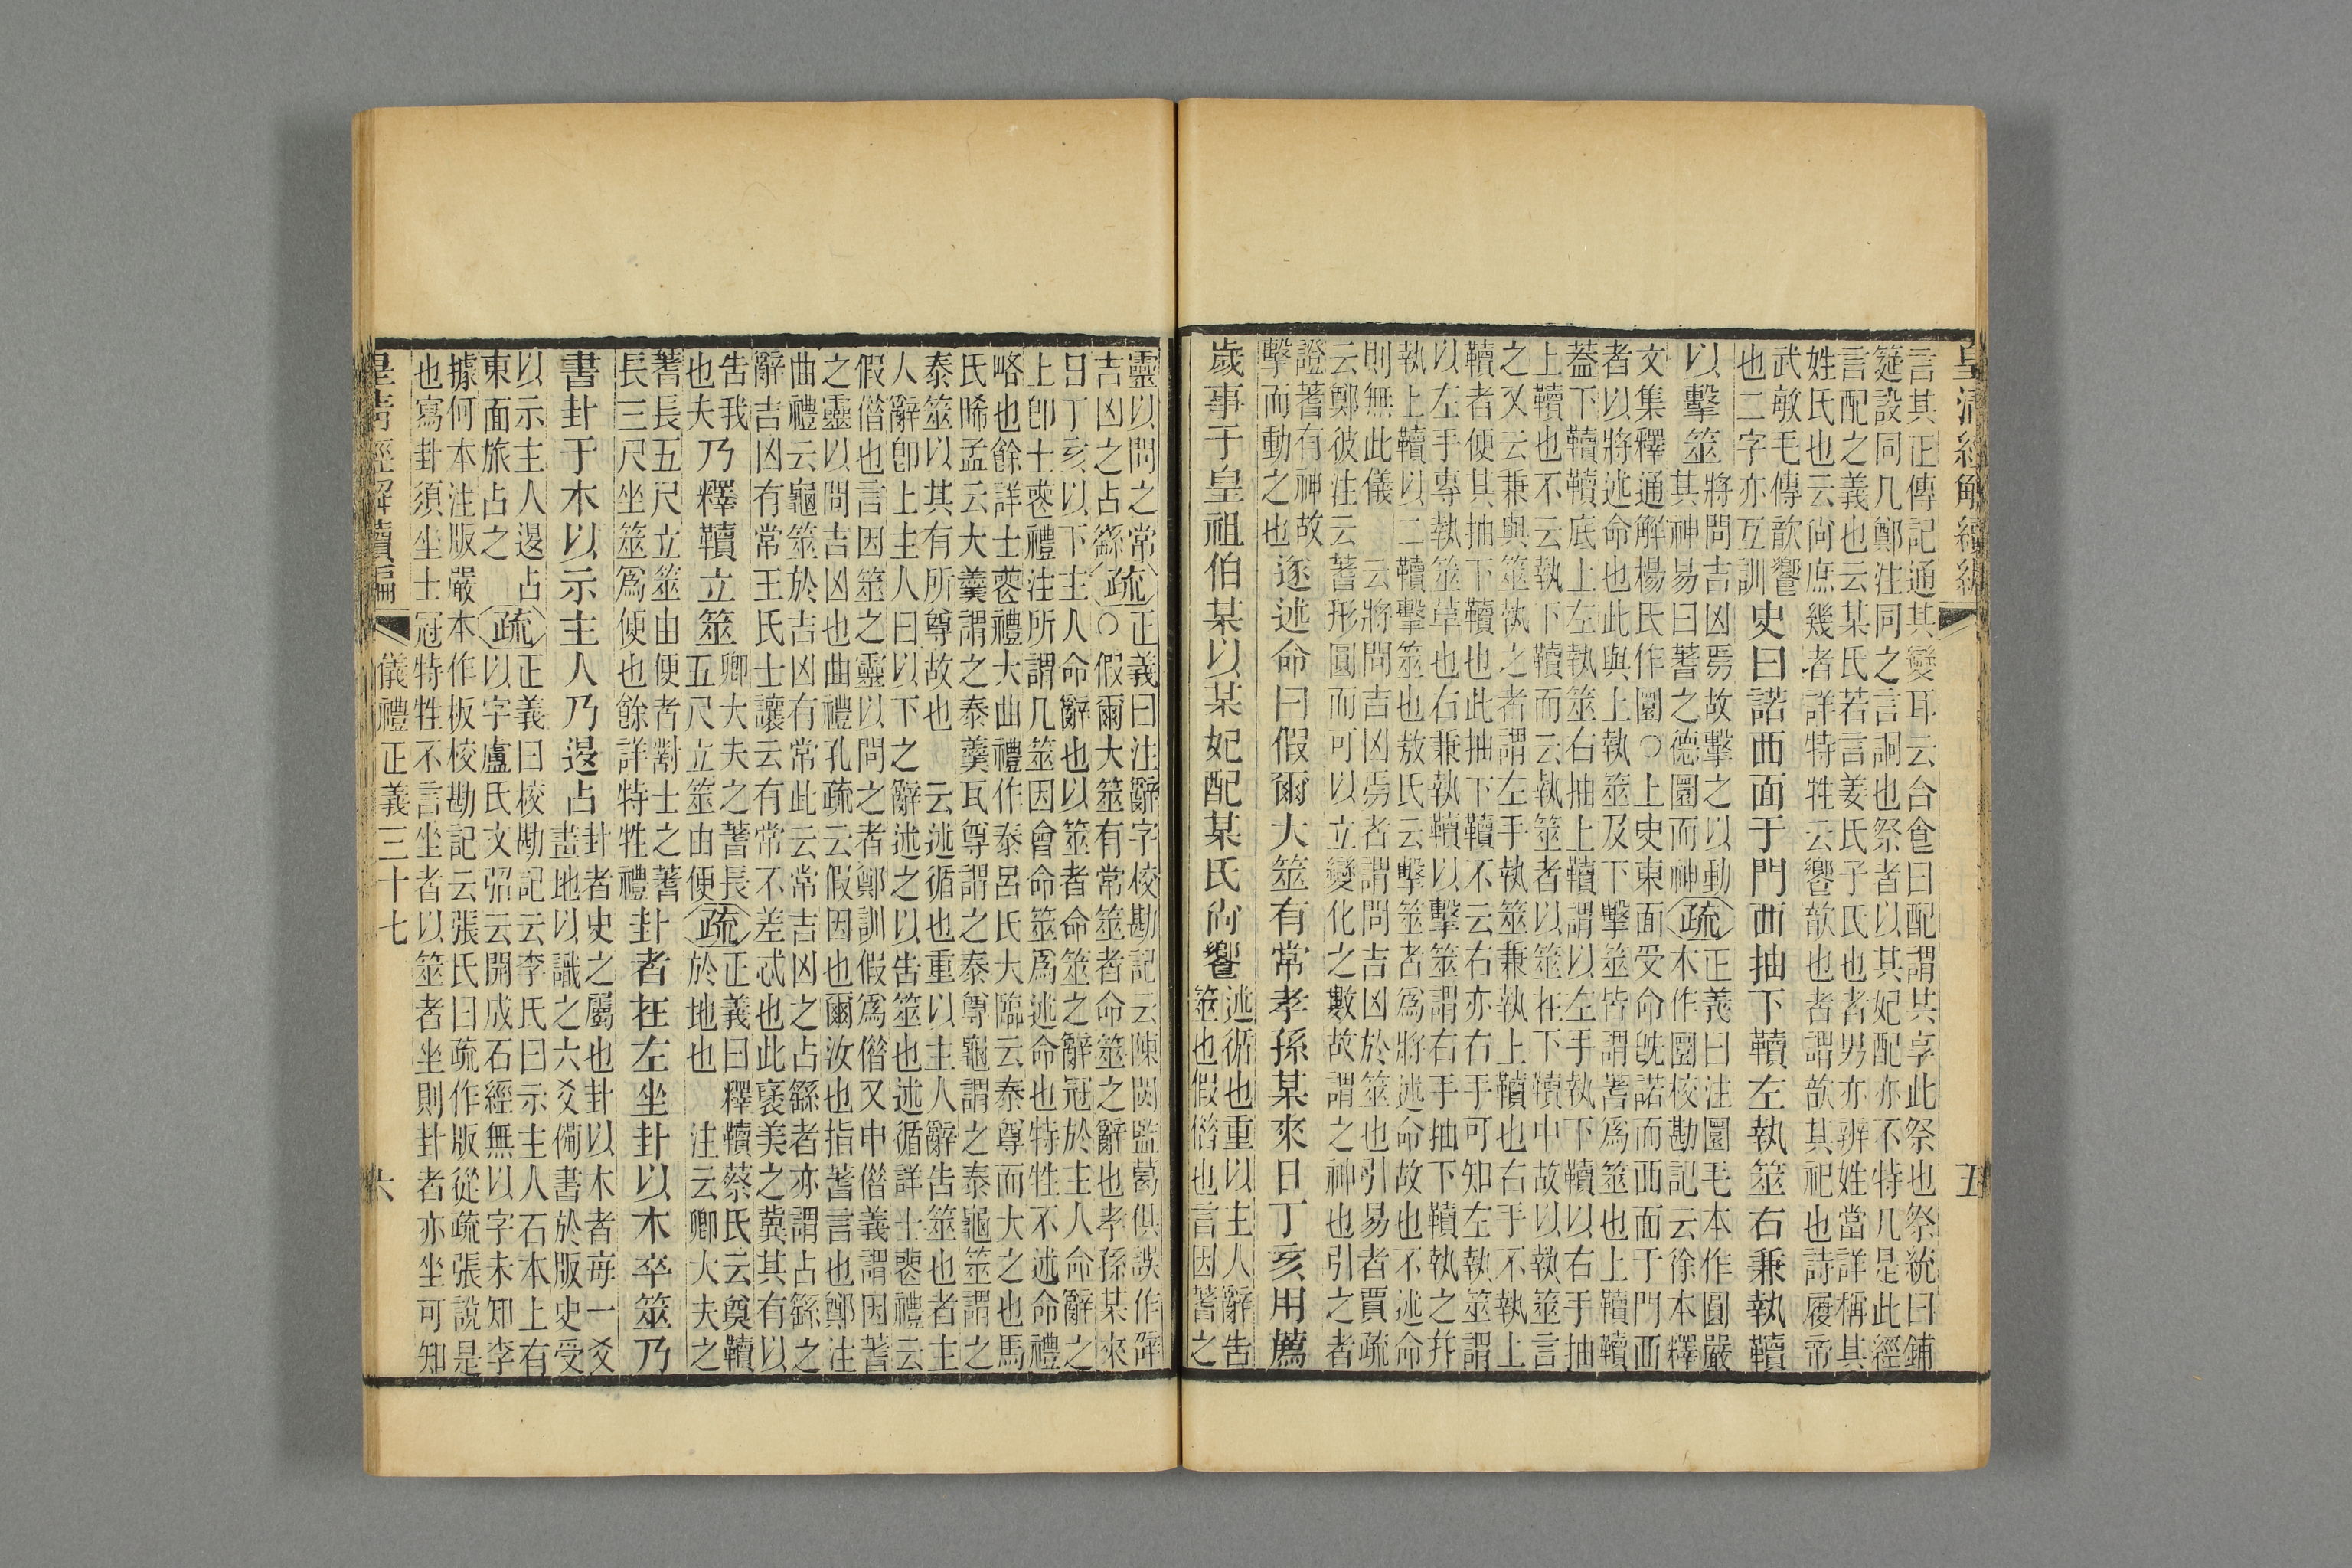 皇清經解續編
五
言其正傳記通其變耳云合食曰配謂其享此祭也祭統曰鋪
筵設同几鄭注同之言詷也祭者以其妃配亦不特几是此經
言配之義也云某氏若言姜氏子氏也者男亦辨姓當詳稱其
姓氏也云尙庶幾者詳特牲云饗歆也者謂歆其祀也詩履帝
武敏毛傳歆饗
也二字亦互訓
史曰諾西面于門西抽下韇左執筮右兼執韇
以擊筮
將問吉凶焉故擊之以動
其神易曰蓍之德圜而神
疏
正義曰注圜毛本作圓嚴
本作圜校勘記云徐本釋
文集釋通解楊氏作圜○上史東面受命旣諾而西面于門西
者以將述命也此與上執筮及下擊筮皆謂蓍爲筮也上韇
蓋下韇韇底上左執筮右抽上韇謂以左手執下韇以右手抽
上韇也不云執下韇而云執筮者以筮在下韇中故以執筮言
之又云兼與筮執之者謂左手執筮兼執上韇也右手不執上
韇者便其抽下韇也此抽下韇不云右亦右手可知左執筮謂
以左手專執筮草也右兼執韇以擊筮謂右手抽下韇執之幷
執上韇以二韇擊筮也敖氏云擊筮者爲將述命故也不述命
則無此儀 云將問吉凶焉者謂問吉凶於筮也引易者賈疏
云鄭彼注云蓍形圓而可以立變化之數故謂之神也引之者
證蓍有神故
擊而動之也
遂述命曰假爾大筮有常孝孫某來日丁亥用薦
歲事于皇祖伯某以某妃配某氏尙饗
述循也重以主人辭告
筮也假借也言因蓍之
靈以問之常
吉凶之占繇
疏
正義曰注辭字校勘記云陳閩監葛俱誤作辤
○假爾大筮有常筮者命筮之辭也孝孫某來
日丁亥以下主人命辭也以筮者命筮之辭冠於主人命辭之
上卽士喪禮注所謂凡筮因會命筮爲述命也特牲不述命禮
略也餘詳士喪禮大曲禮作泰呂氏大臨云泰尊而大之也馬
氏晞孟云大羹謂之泰羹瓦尊謂之泰尊龜謂之泰龜筮謂之
泰筮以其有所尊故也 云述循也重以主人辭告筮也者主
人辭卽上主人曰以下之辭述之以告筮也述循詳士喪禮云
假借也言因筮之靈以問之者鄭訓假爲借又申借義謂因蓍
之靈以問吉凶也曲禮孔疏云假因也爾汝也指蓍言也鄭注
曲禮云龜筮於吉凶有常此云常吉凶之占繇者亦謂占繇之
辭吉凶有常王氏士讓云有常不差忒也此褒美之冀其有以
告我
也夫
乃釋韇立筮
卿大夫之蓍長
五尺立筮由便
疏
正義曰釋韇蔡氏云奠韇
於地也 注云卿大夫之
蓍長五尺立筮由便者對士之蓍
長三尺坐筮爲便也餘詳特牲禮
卦者在左坐卦以木卒筮乃
書卦于木以示主人乃退占
卦者史之屬也卦以木者每一爻
畫地以識之六爻備書於版史受
以示主人退占
東面旅占之
疏
正義曰校勘記云李氏曰示主人石本上有
以字盧氏文弨云開成石經無以字未知李
據何本注版嚴本作板校勘記云張氏曰疏作版從疏張說是
也寫卦須坐士冠特牲不言坐者以筮者坐則卦者亦坐可知
皇清經解續編
儀禮正義三十七
六